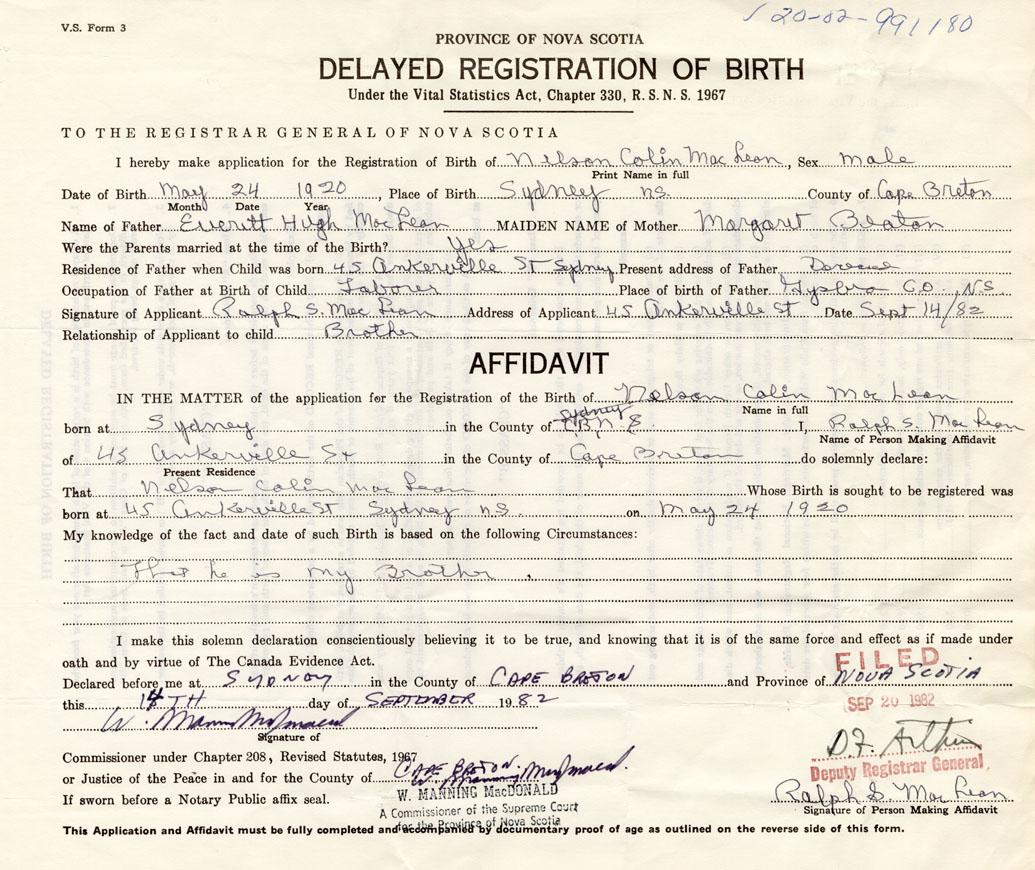 V.S. Form 3
20-02-991180
PROVINCE OF NOVA SCOTIA
DELAYED REGISTRATION OF BIRTH
Under the Vital Statistics Act, Chapter 330, R. S. N. S. 1967
TO THE REGISTRAR GENERAL OF NOVA SCOTIA
I hereby make application for the Registration of Birth of Nelson Colin MacLean, Sex male
Print Name in full
Date of Birth May 24 1920, Place of Birth Sydney ns. County of Cape Breton
Month Date Year
Name of Father Everett Hugh MacLean MAIDEN NAME of Mother Margaret Beaton
Were the Parents married at the time of the Birth? Yes
Residence of Father when Child was born 45 Ankerville ST Sydney Present address of Father
Occupation of Father at Birth of Child Laborer Place of birth of Father CO. N.S.
Signature of Applicant Ralph S. MacLean Address of Applicant 45 Ankerville St Date Sept 14/82
Relationship of Applicant to child Brother
AFFIDAVIT
IN THE MATTER of the application for the Registration of the Birth of Nelson Colin MacLean
Name in full
Sydney
born at Sydney in the County of C.B. N.S. I, Ralph S. MacLean
Name of Person Making Affidavit
of 45 Ankerville St in the County of Cape Breton do solemnly declare:
Present Residence
That Nelson Colin MacLean Whose Birth is sought to be registered was
born at 45 Ankerville St Sydney ns. on May 24 1920
My knowledge of the fact and date of such Birth is based on the following Circumstances:
That he is my Brother.
I make this solemn declaration conscientiously believing it to be true, and knowing that it is of the same force and effect as if made under
oath and by virtue of The Canada Evidence Act.
FILED
Declared before me at SYDNEY in the County of CAPE BRETON and Province of NOVA SCOTIA
this 14TH day of SEPTEMBER 1982
SEP 20 1982
W. Manning MacDonald
Signature of
Commissioner under Chapter 208, Revised Statutes, 1967
D.F. Arthur
or Justice of the Peace in and for the County of CAPE BRETON. W. Manning MacDonald
Deputy Registrar General
W. MANNING MacDONALD
If sworn before a Notary Public affix seal.
Ralph S. MacLean
A Commissioner of the Supreme Court
Signature of Person Making Affidavit
for the Province of Nova Scotia
This Application and Affidavit must be fully completed and accompanied by documentary proof of age as outlined on the reverse side of this form.